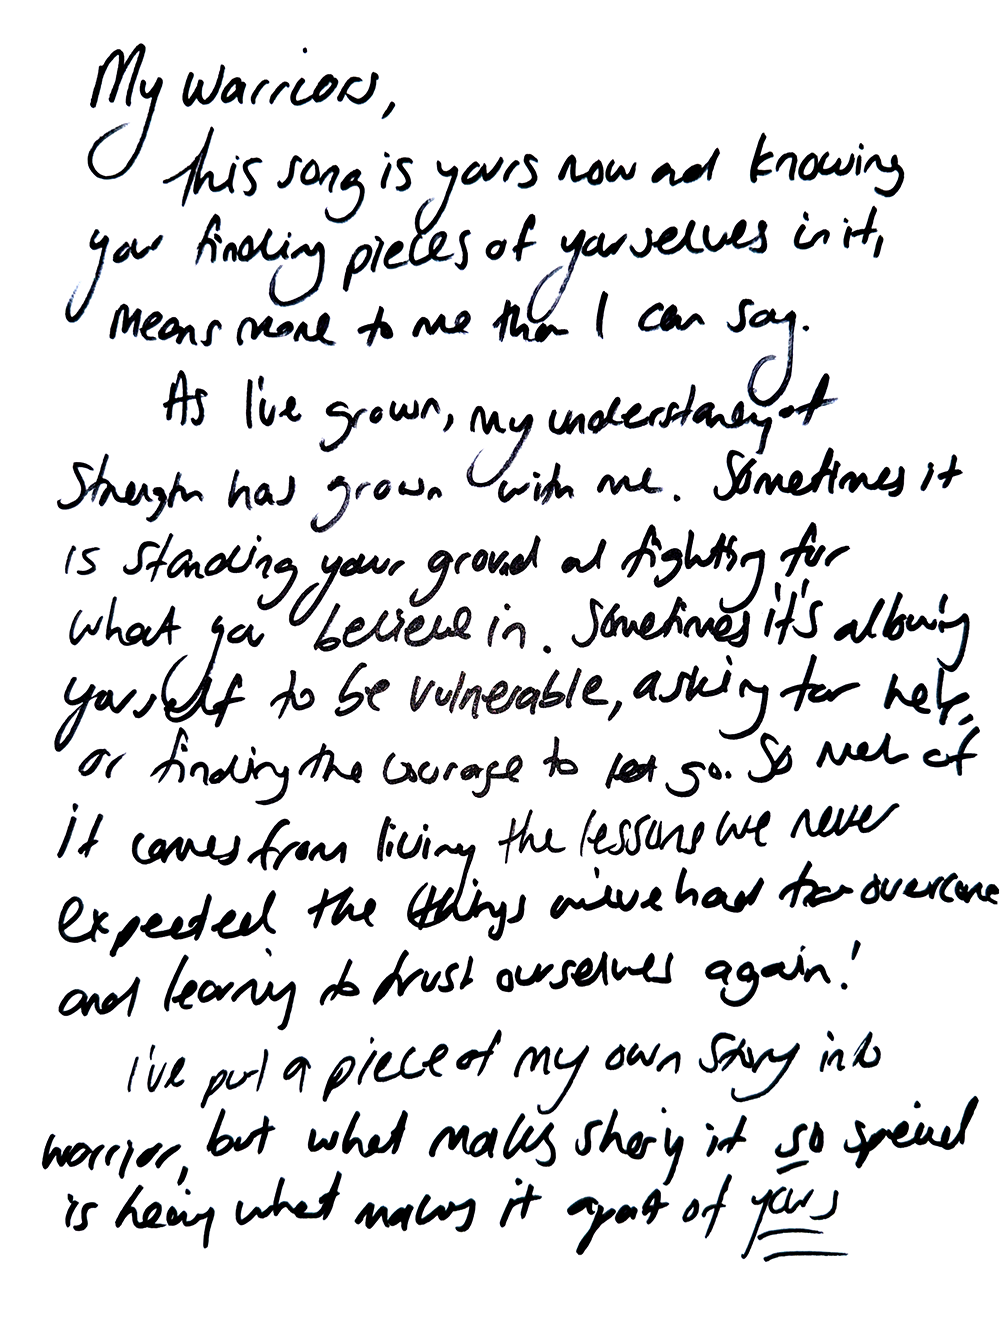 My warriors,
this song is yours now and knowing
your finding pieces of yourselves in it,
means more to me than I can say.
As I've grown, my understanding of
Strength has grown with me. Sometimes it
is standing your ground and fighting for
what you believe in. Sometimes it's allowing
yourself to be vulnerable, asking for help,
or finding the courage to let go. So much of
it comes from living the lessons we never
expected the things we've had to overcome
and learning to trust ourselves again!
I've put a piece of my own story into
warrior, but what makes sharing it so special
is hearing what makes it a part of yours